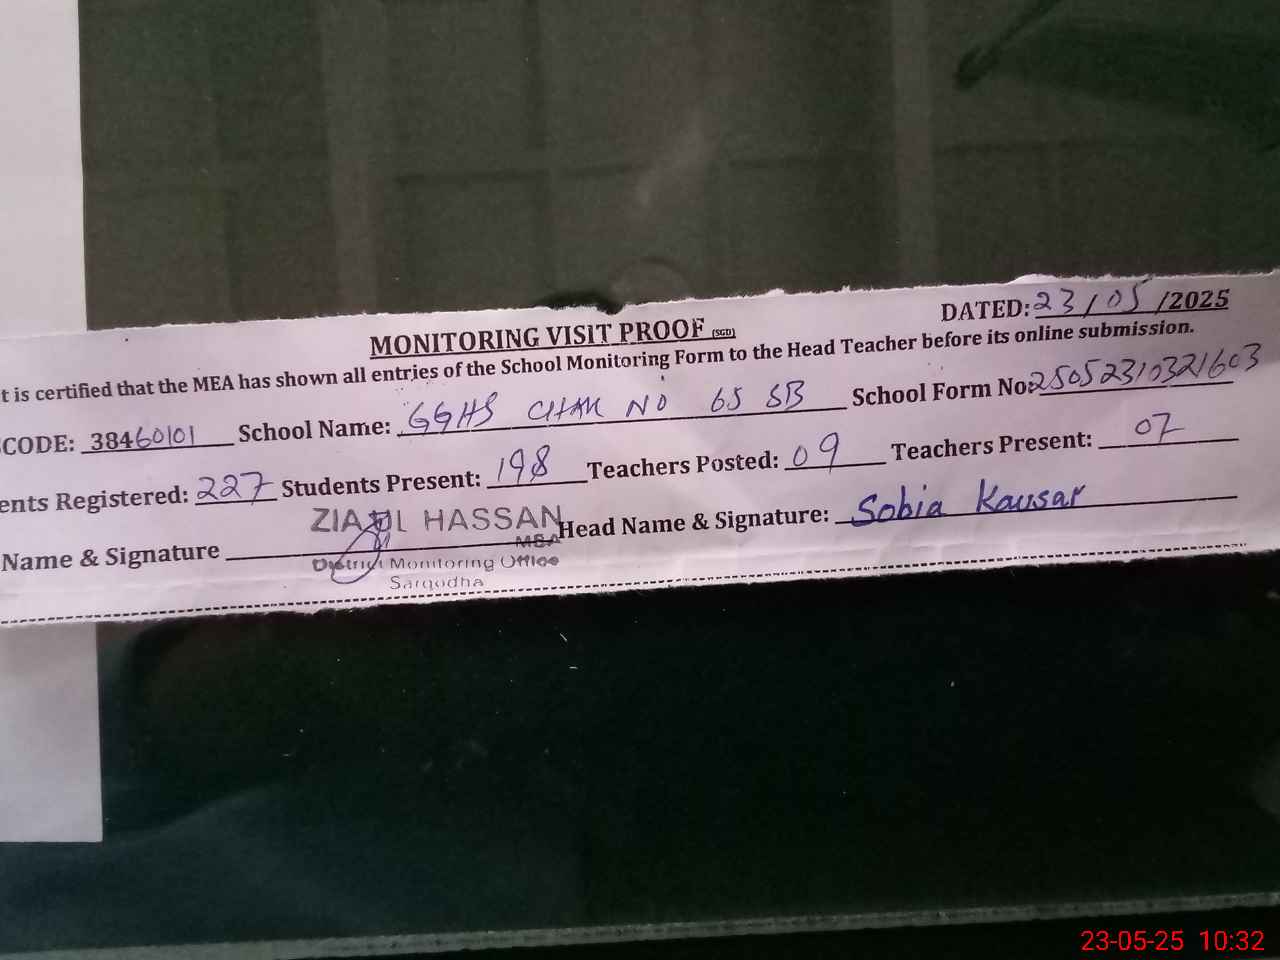 DATED: 23/05/2025
MONITORING VISIT PROOF (SGD)
t is certified that the MEA has shown all entries of the School Monitoring Form to the Head Teacher before its online submission.
CODE: 38460101 School Name: GGHS CHAK NO 65 SB School Form No: 25052310321603
ents Registered: 227 Students Present: 198 Teachers Posted: 09 Teachers Present: 07
Name & Signature ZIA UL HASSAN Head Name & Signature: Sobia Kausar
MEA
District Monitoring Office
Sargodha
23-05-25 10:32